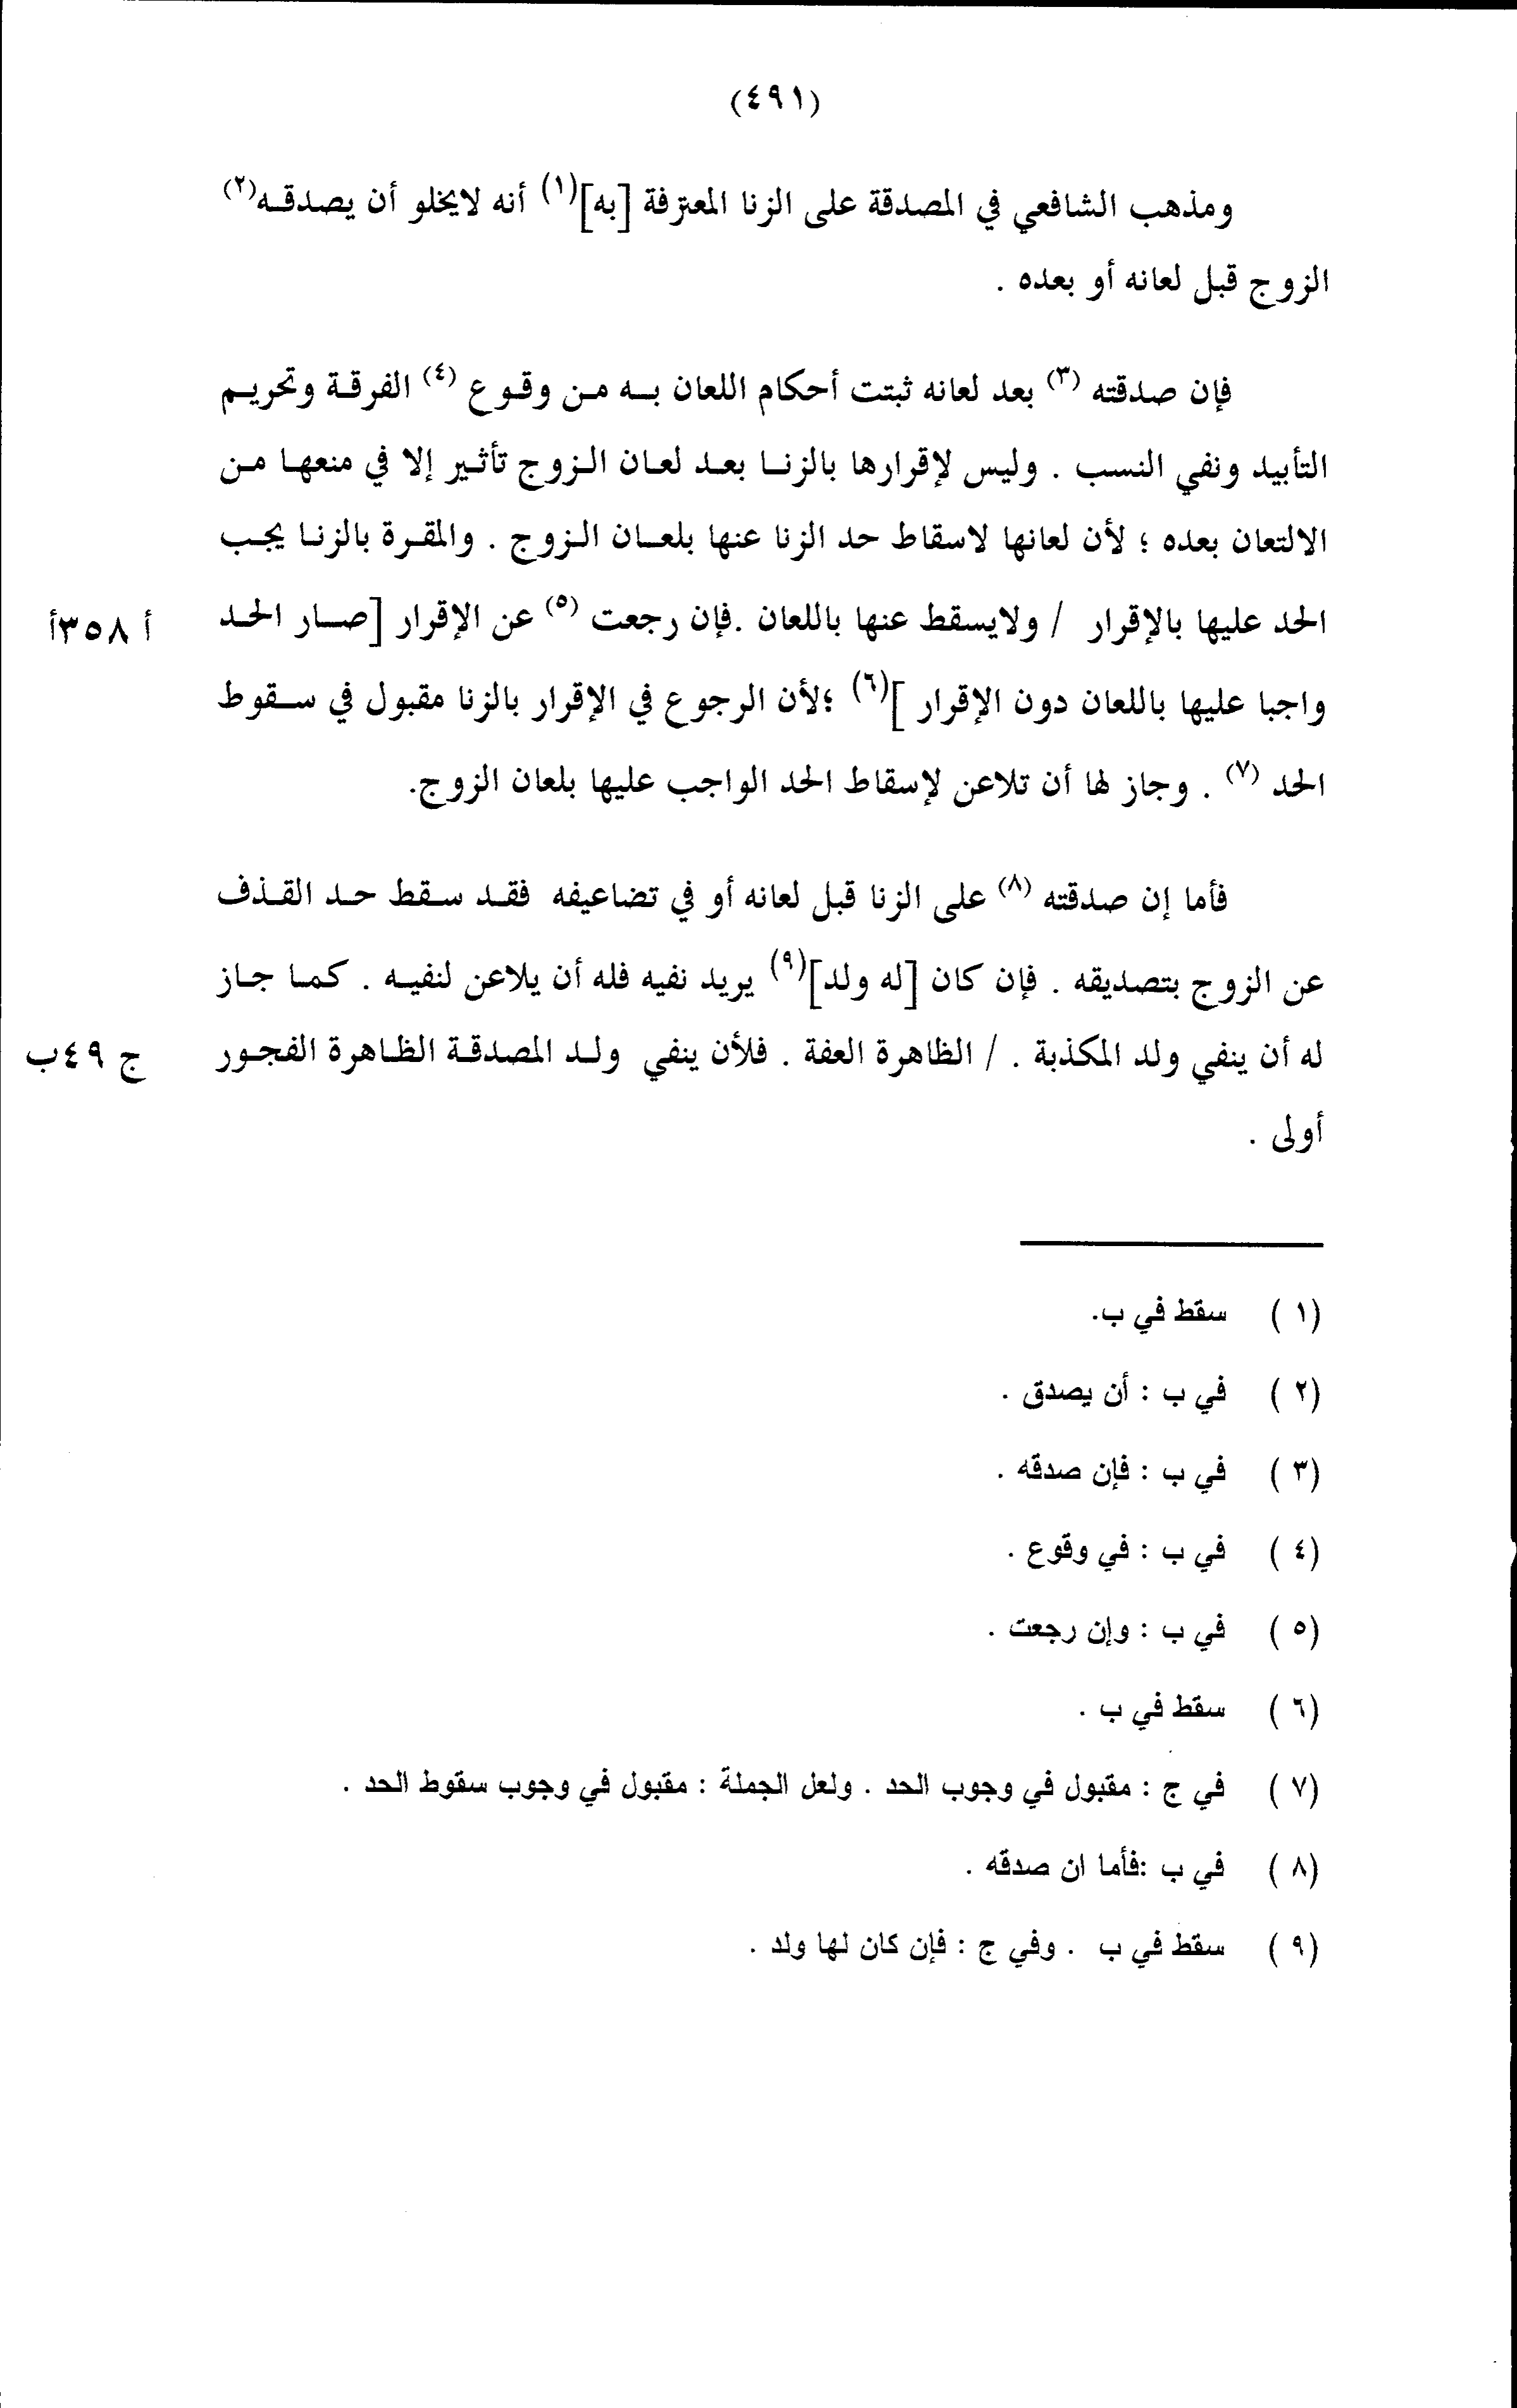 (٤٩١)
ومذهب الشافعي في المصدقة على الزنا المعترفة [به](١) أنه لايخلو أن يصدقه(٢)
الزوج قبل لعانه أو بعده .
فإن صدقته (٣) بعد لعانه ثبتت أحكام اللعان به من وقوع (٤) الفرقة وتحريم
التأبيد ونفي النسب . وليس لإقرارها بالزنا بعد لعان الزوج تأثير إلا في منعها من
الالتعان بعده ؛ لأن لعانها لاسقاط حد الزنا عنها بلعان الزوج . والمقرة بالزنا يجب
الحد عليها بالإقرار / ولايسقط عنها باللعان .فإن رجعت (٥) عن الإقرار [صار الحد أ ٣٥٨أ
واجبا عليها باللعان دون الإقرار ](٦) ؛لأن الرجوع في الإقرار بالزنا مقبول في سقوط
الحد (٧) . وجاز لها أن تلاعن لإسقاط الحد الواجب عليها بلعان الزوج.
فأما إن صدقته (٨) على الزنا قبل لعانه أو في تضاعيفه فقد سقط حد القذف
عن الزوج بتصديقه . فإن كان [له ولد](٩) يريد نفيه فله أن يلاعن لنفيه . كما جاز
له أن ينفي ولد المكذبة . / الظاهرة العفة . فلأن ينفي ولد المصدقة الظاهرة الفجور ج ٤٩ب
أولى .
(١) سقط في ب.
(٢) في ب : أن يصدق .
(٣) في ب : فإن صدقه .
(٤) في ب : في وقوع .
(٥) في ب : وإن رجعت .
(٦) سقط في ب .
(٧) في ج : مقبول في وجوب الحد . ولعل الجملة : مقبول في وجوب سقوط الحد .
(٨) في ب :فأما ان صدقه .
(٩) سقط في ب . وفي ج : فإن كان لها ولد .